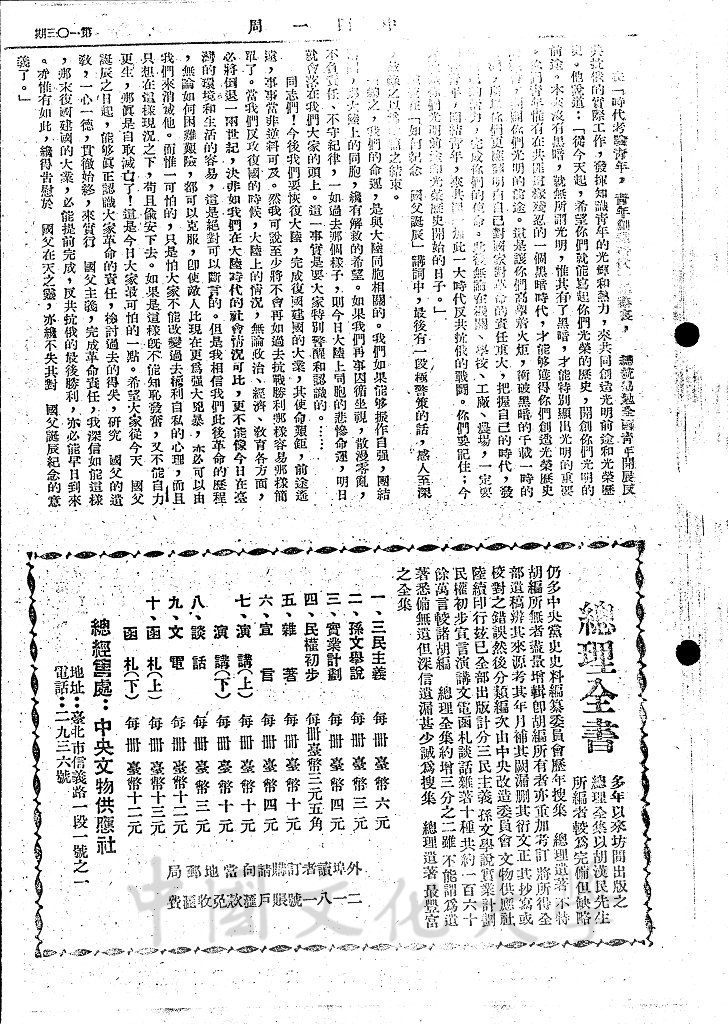 中國一周
第一〇三期
在「時代考驗青年，青年創
總裁勗勉全國青年開展反
共抗俄的實際工作，發揮知識青年的光輝和熱力，來共同創造光明前途和光榮歷
史。他說道：「從今天起，希望你們就能寫起你們光榮的歷史，開創你們光明的
前途。本來沒有黑暗，就無所謂光明，惟其有了黑暗，才能特別顯出光明的重要
青年惟有在共匪這樣殘忍的一個黑暗時代，才能够獲得你們創造光榮歷史
你們光明的前途。這是讓你們高舉着火炬，衝破黑暗的千載一時的
你們更應該明白自己對國家對革命的責任重大，把握自己的時代，發
力，完成你們的使命。此後無論在機關、學校、工廠、農場，一定要
青年，團結青年，來共同參加此一大時代反共抗俄的戰鬪。你們要記住：今
你們光明前途和光榮歷史開始的日子。」
在「如何紀念　國父誕辰」講詞中，最後有一段極警策的話，感人至深
之結束。
總之，我們的命運，是與大陸同胞相關的。我們如果能够振作自强，團結
大陸上的同胞，纔有解救的希望。如果我們再事因循坐視，散漫零亂，
不負責任、不守紀律，一如過去那個樣子，則今日大陸上同胞的悲慘命運，明日
就會落在我們大家的頭上。這一事實是要大家特別警醒和認識的。……
同志們！今後我們要恢復大陸，完成復國建國的大業，其使命艱鉅，前途遙
遠，事事當非逆料可及。然我可說至少將不會再如過去抗戰勝利那樣容易那樣簡
單了。當我們反攻復國的時候，大陸上的情況，無論政治、經濟、教育各方面，
必將倒退一兩世紀，決非如我們在大陸時代的社會情況可比，更不能像今日在臺
灣的環境和生活的容易，這是絕對可以斷言的。但是我相信我們此後革命的歷程
，無論如何困難艱險，都可以克服，卽使敵人比現在更爲强大兇暴，亦必可以由
我們來消滅他。而惟一可怕的，只是怕大家不能改變過去稱利自私的心理，而且
只想在這樣現況之下，苟且偸安下去。如果是這樣旣不能知恥發奮，又不能自力
更生，那眞是自取滅亡了！這是今日大家最可怕的一點。希望大家從今天　國父
誕辰之日起，能够眞正認識大家革命的責任，檢討過去的得失，研究　國父的遺
敎，一心一德，貫徹始終，來實行　國父主義，完成革命責任，我深信如能這樣
，那末復國建國的大業，必能提前完成，反共抗俄的最後勝利，亦必能早日到來
。亦惟有如此，纔得告慰於　國父在天之靈，亦纔不失其對　國父誕辰紀念的意
義了。」
總理全書
多年以來坊間出版之
總理全集以胡漢民先生
所編者較爲完備但缺略
仍多中央黨史史料編纂委員會歷年搜集　總理遺著不特
胡編所無者盡量增輯卽胡編所有者亦重加考訂將所得全
部遺稿辨其來源考其年月補其闕漏刪其衍文正其抄寫或
校對之錯誤然後分類編次由中央改造委員會文物供應社
陸續印行玆已全部出版計分三民主義孫文學說實業計劃
民權初步宣言演講文電函札談話雜著十種共約一百六十
餘萬言較諸胡編　總理全集約增三分之二雖不能謂爲遺
著悉備無遺但深信遺漏甚少誠爲搜集　總理遺著最豐富
之全集
一、三民主義　每冊臺幣六元
二、孫文學說　每冊臺幣三元
三、實業計劃　每冊臺幣四元
四、民權初步　每冊臺幣三元五角
五、雜著　每冊臺幣十元
六、宣言　每冊臺幣四元
七、演講（上）　每冊臺幣十元
演講（下）　每冊臺幣十元
八、談話　每冊臺幣三元
九、文電　每冊臺幣十二元
十、函札（上）　每冊臺幣十三元
函札（下）　每冊臺幣十二元
總經售處：中央文物供應社
地址：臺北市信義路一段一號之一
電話：二九三六號
外埠讀者訂購請向當地郵局
二一八一號賬戶滙款免收滙費
中國文化大學